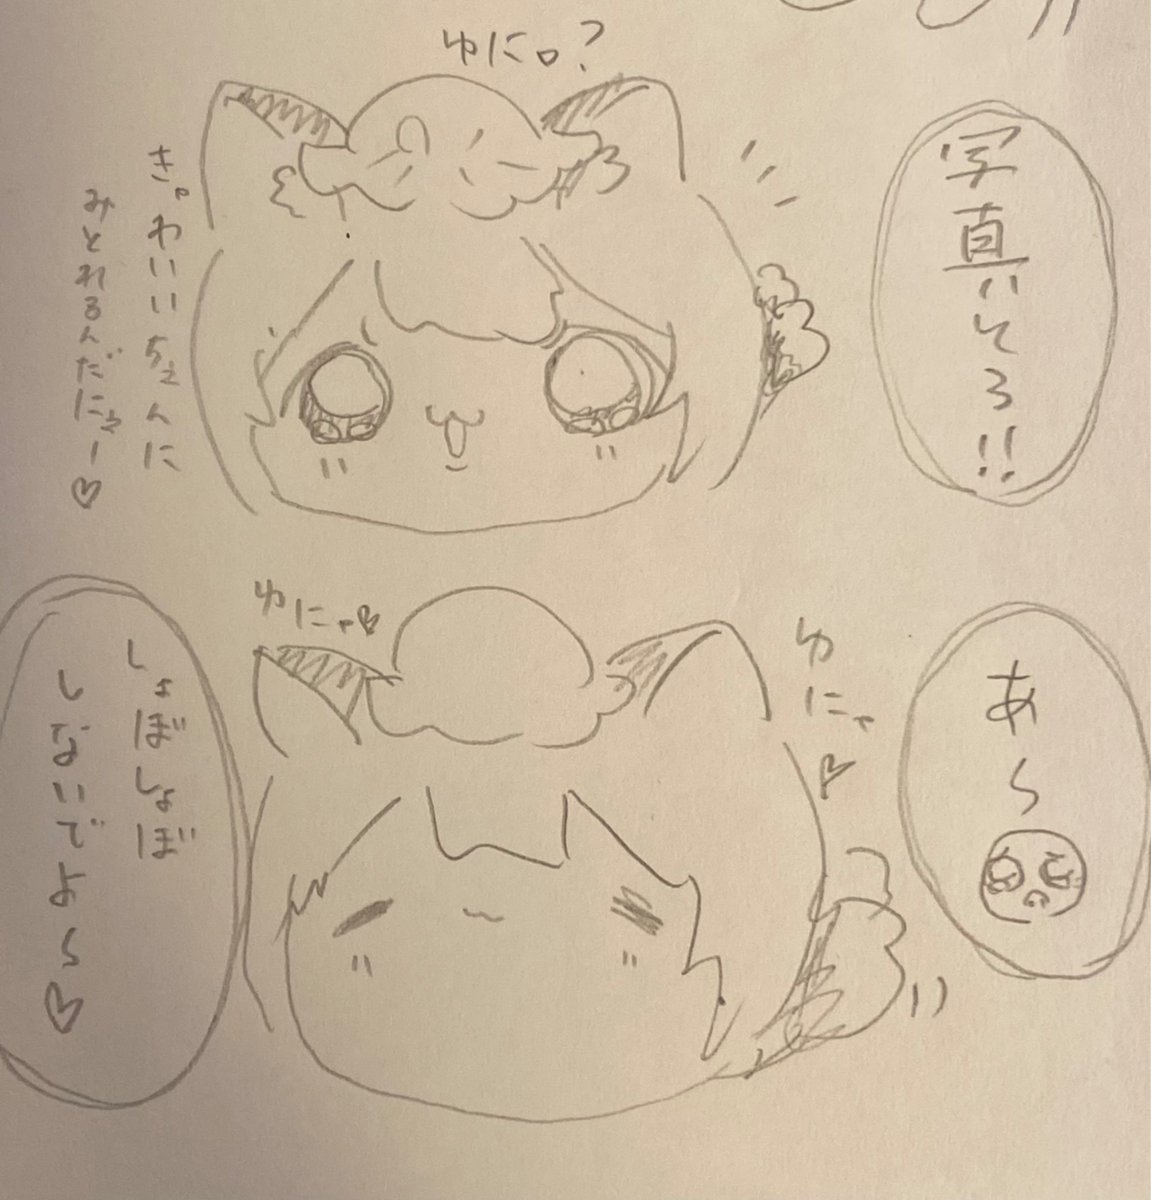 ゆにゃ?
写真いてろ!!
きゃわいいちぇんに
みとれるんだにゃー♡
あ〜
ゆにゃ♡
ゆにゃ♡
しょぼしょぼ
しないでよ〜♡